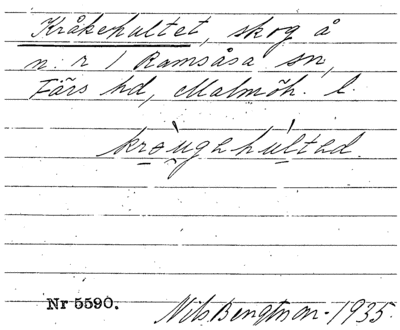 Kråkehultet, skog å
n:r 1 Ramsåsa sn,
Färs hd, Malmöh. l.
kròugehúlted.
Nr 5590.
Nils Bengtson - 1935.